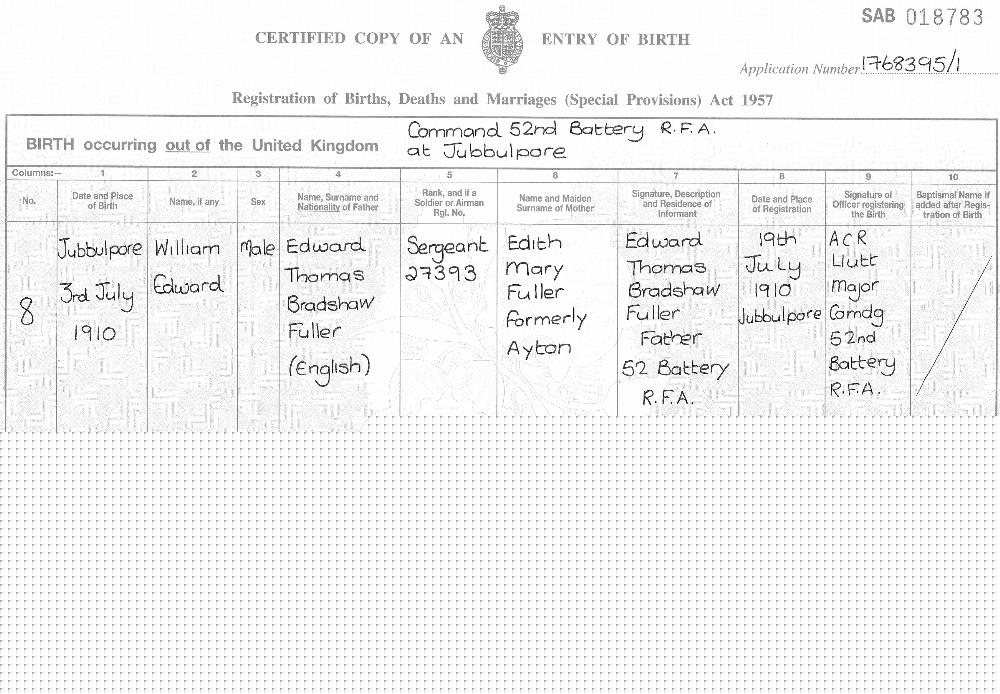 SAB 018783
CERTIFIED COPY OF AN ENTRY OF BIRTH
Application Number 1768395/1
Registration of Births, Deaths and Marriages (Special Provisions) Act 1957
BIRTH occurring out of the United Kingdom
Command 52nd Battery R.F.A.
at Jubbulpore
Columns:— 1 2 3 4 5 6 7 8 9 10
No.
Date and Place
of Birth
Name, if any
Sex
Name, Surname and
Nationality of Father
Rank, and if a
Soldier or Airman
Rgl. No.
Name and Maiden
Surname of Mother
Signature, Description
and Residence of
Informant
Date and Place
of Registration
Signature of
Officer registering
the Birth
Baptismal Name if
added after Regis-
tration of Birth
8
Jubbulpore
3rd July
1910
William
Edward
Male
Edward
Thomas
Bradshaw
Fuller
(English)
Sergeant
27393
Edith
Mary
Fuller
formerly
Ayton
Edward
Thomas
Bradshaw
Fuller
Father
52 Battery
R.F.A.
19th
July
1910
Jubbulpore
ACR
Major
Comdg
52nd
Battery
R.F.A.